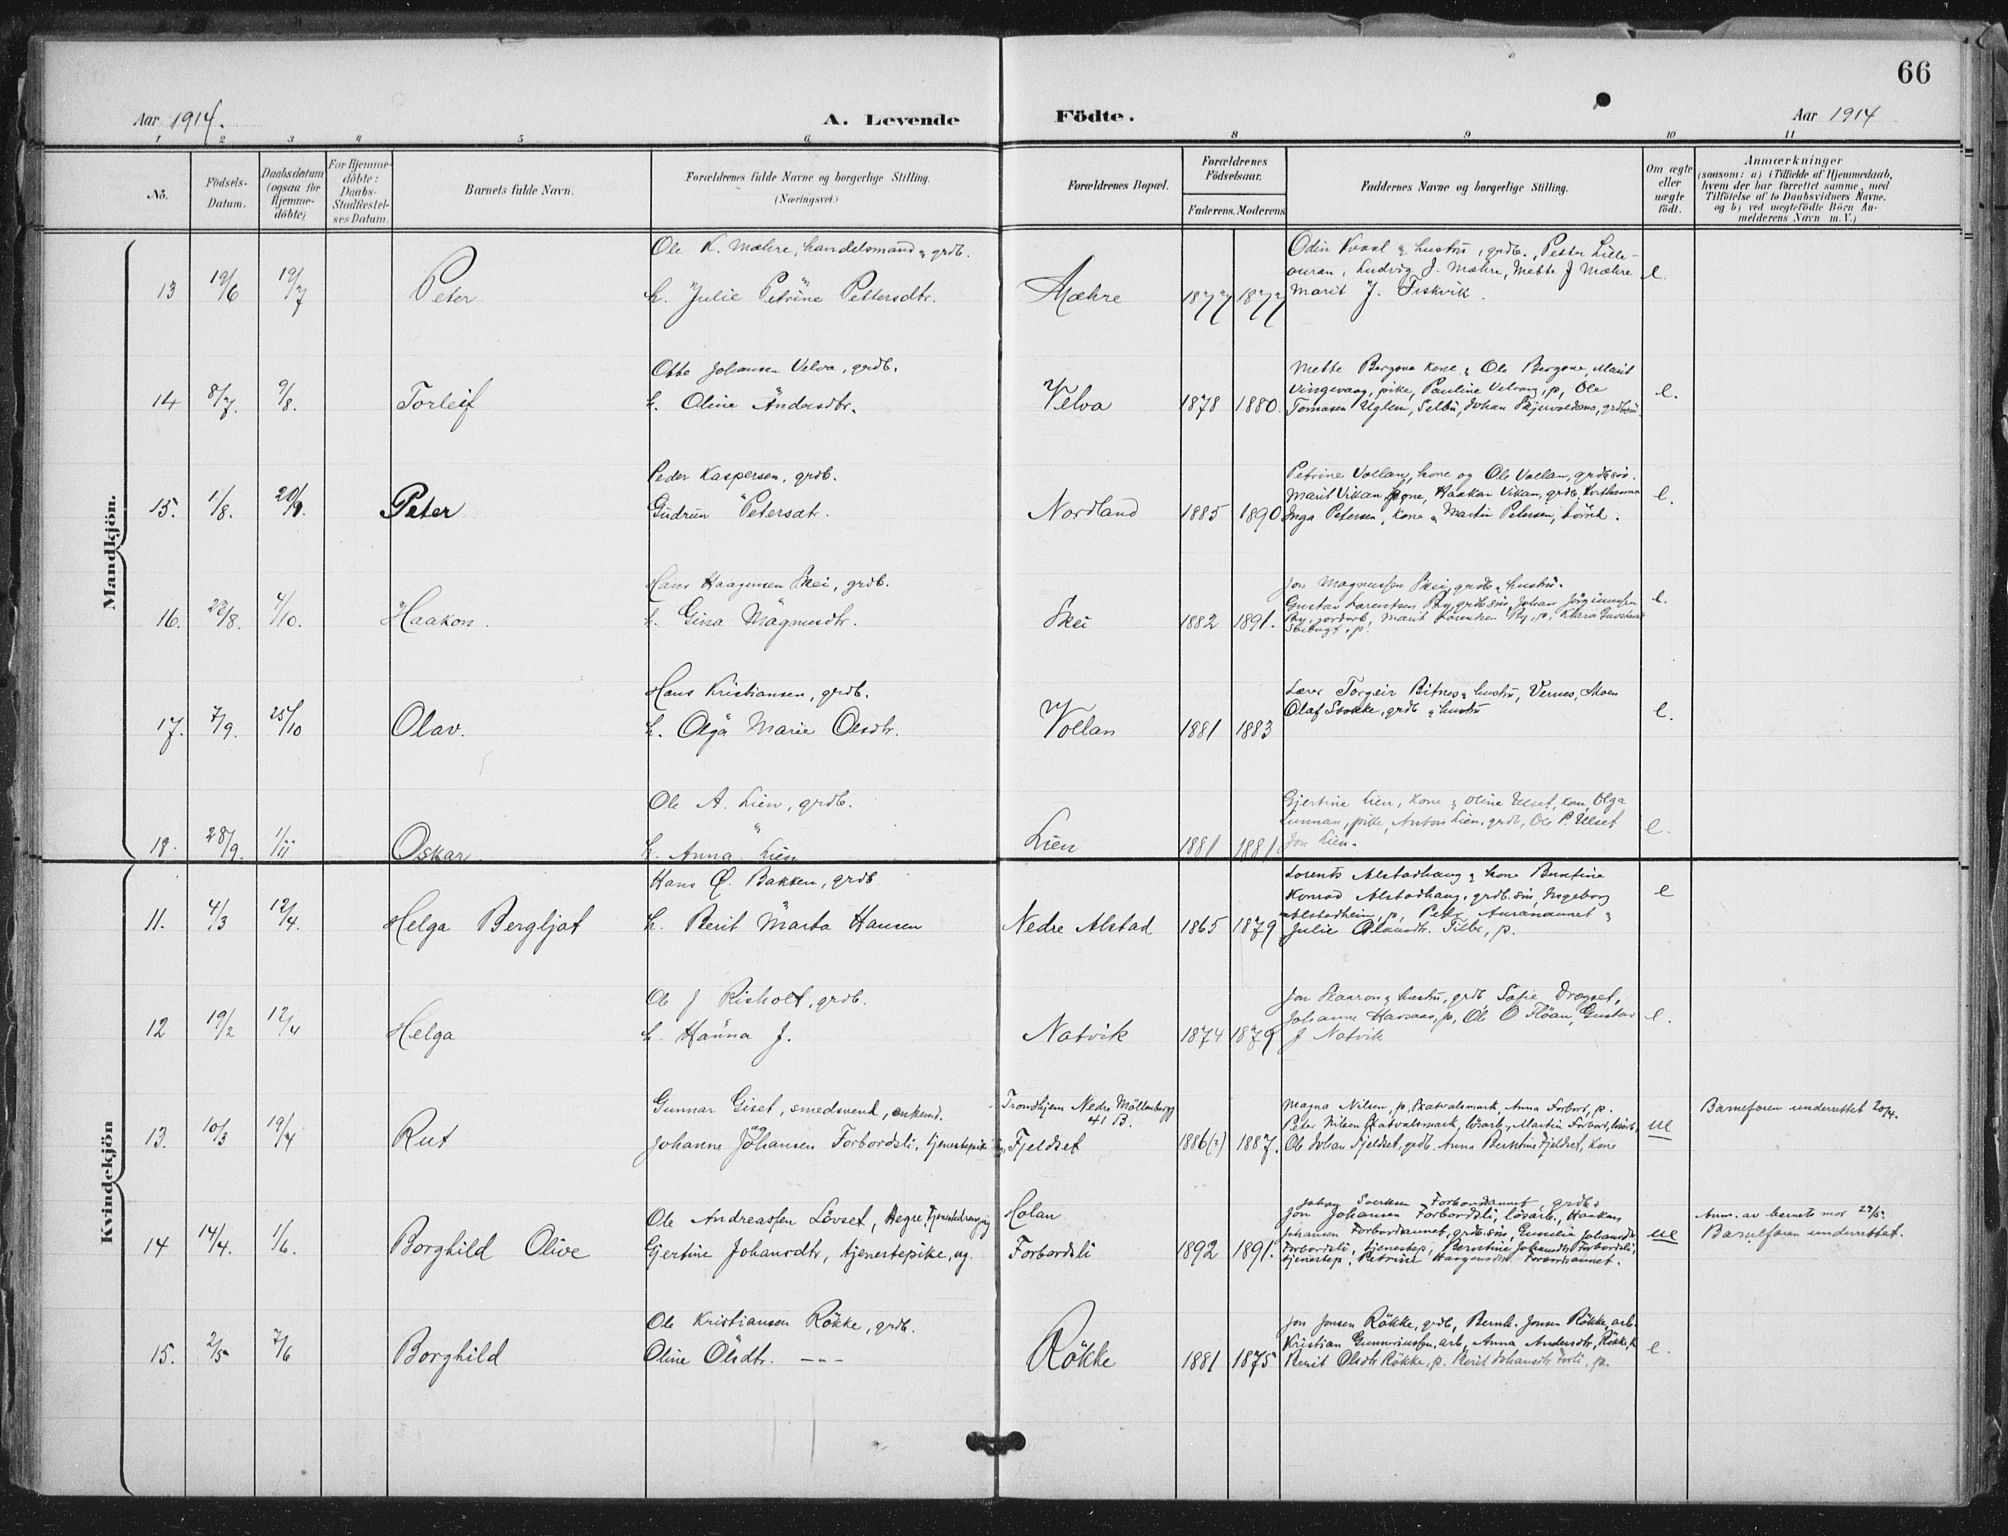 66
Aar 1914.
A. Levende
Födte.
Aar 1914
1 2 3 4 5 6 8 9 10 11
No.
Födsels-Datum.
Daabsdatum (ogsaa for Hjemme-döbte)
For Hjemme-döbte: Daabs-Stadfæstel-ses Datum.
Barnets fulde Navn.
Forældrenes fulde Navne og borgerlige Stilling.
(Næringsvei.)
Forældrenes Bopæl.
Forældrenes Födselsaar.
Faderens. Moderens.
Faddernes Navne og borgerlige Stilling.
Om ægte eller uægte födt.
Anmærkninger
(saasom: a) i Tilfælde af Hjemmedaab,
hvem der har forrettet samme, med
Tilföielse af to Daabsvidners Navne.
og b) ved uægtefödte Börn An-
melderens Navn m. V.)
Mandkjön.
Ole K. Mæhre, handelsmand, grdb.
13 19/6 19/7 Peter h. Julie Petrine Pettersdtr. Mæhre 1877 1877
Odin Kvaal " hustru, grdb., Peter Lille-
auran, Ludvig J. Mæhre, Mette J Mæhre
Marit J. Fiskvik. e.
Otto Johansen Velva, grdb.
14 8/7. 9/8. Torleif h. Oline Andersdtr. Velva 1878 1880.
Mette Bergone kone " Ole Bergone, Marit
Vingvaag, pike, Pauline Velvang, p, Ole
Tomasen Uglem, Selbu, Johan, grdbsøn. e.
Peder Kaspersen, grdb.
15. 1/8. 20/9. Peter Gudrun Petersdt. Nordland 1885 1890
Petrine Vollan, kone og Ole Vollan, grdbsøn.
Marit Vikan, Haakon Vikan, grdb,
Inga Petersen, kone " Martin Petersen. e.
Hans Haagensen Skei, grdb.
16. 22/8. 4/10. Haakon. h. Gina Magnusdtr. Skei 1882 1891.
Jon Magnussen Skei, grdb " hustru.
Gustav Lorentsen By, grdbsøn, Johan
By, jordarb, Marit Lorentsen By, p, Klara
p. e.
Hans Kristiansen, grdb.
17. 7/9. 25/10 Olav. h. Olga Marie Olsdtr. Vollan 1881 1883
Lærer Torgeir Bitnes " hustru, Vernes, Moen
Olaf, grdb " hustru e.
Ole A. Lien, grdb.
18. 28/9. 1/11 Oskar h. Anna Lien Lien 1881 1881.
Gjertine Lien, kone " Oline Ulset, kone, Olga
Lunnan, pike, Anton Lien, grdb, Ole P. Ulset
Jon Lien. e.
Kvindekjön
Hans O. Bakken, grdb
11. 4/3 12/4. Helga Bergljot h. Berit Marta Hansen Nedre Alstad 1865 1879
Lorents Alstadhaug " kone Berntine
Konrad Alstadhaug, grdb.søn, Ingeborg
Alstadheim, p, Peter Auranaunet "
Julie Tilbe, p. e
Ole J Risholt, grdb.
12 19/2 12/4 Helga h. Hanna J. Natvik 1874 1879
Jon " hustru, grdb, Sofie Dragset,
Johanne, p, Ole O Flöan, Gustav
J Natvik e.
Gunnar Giset, smedsvend, enkemd. Trondhjem Nedre Möllenbergg 41 B.
13. 10/3 19/4 Rut og Johanne Johansen Forbordsli, tjenestepike Fjeldset 1886(?) 1887.
Magna Nilsen, p, Skatvalsmark, Anna Forbord, p.
Peter Nilsen Skatvalsmark, lösarb., Martin Forbord, lösarb,
Ole Johan Fjeldset, grdb. Anna Berntine Fjeldset, kone ue
Barnefaren underrettet 20/4.
Ole Andreassen Lövset, Hegre, tjenestedreng, ug Holan
14 14/4. 1/6. Borghild Olive Gjertine Johansdtr, tjenestepike, ug. Forbordsli 1892 1891.
Johan Sivertsen Forbordaunet, grdb,
Jon Johansen Forbordsli, lösarb., Haakon
Johansen Forbordaunet, grdb.søn, Gunelie Johansdtr
Forbordsli, tjenestep, Berntine Johansdtr Forbordsli,
tjenestep, Petrine Haagensdtr. Forbordaunet. ue
Anm. av barnets mor 29/5.
Barnefaren underrettet.
Ole Kristiansen Rökke, grdb.
15. 2/5 7/6 Borghild Oline Olsdtr. —"— Rökke 1881 1875
Jon Jonsen Rökke, grdb, Bernh. Jonsen Rökke, arb.
Kristian Gunneriussen, arb, Anna Andersdtr. Rökke, k
Berit Olsdtr Rökke, p. Berit Johansdtr Forli, p. e.